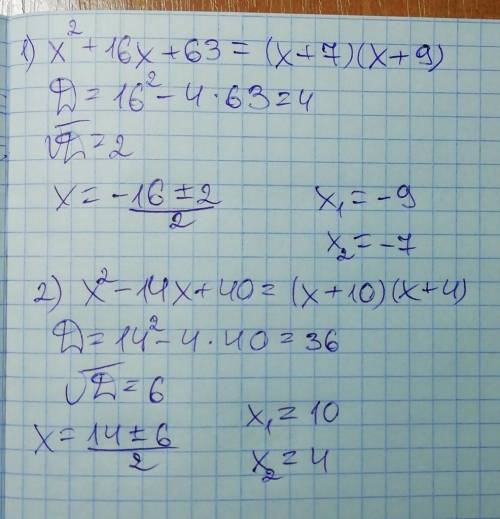 1) x² + 16x + 63 = (x+7)(x+9)
D = 16² - 4 · 63 = 4
√D = 2
x = -16 ± 2 / 2    x₁ = -9
x₂ = -7
2) x² - 14x + 40 = (x+10)(x+4)
D = 14² - 4 · 40 = 36
√D = 6
x = 14 ± 6 / 2    x₁ = 10
x₂ = 4